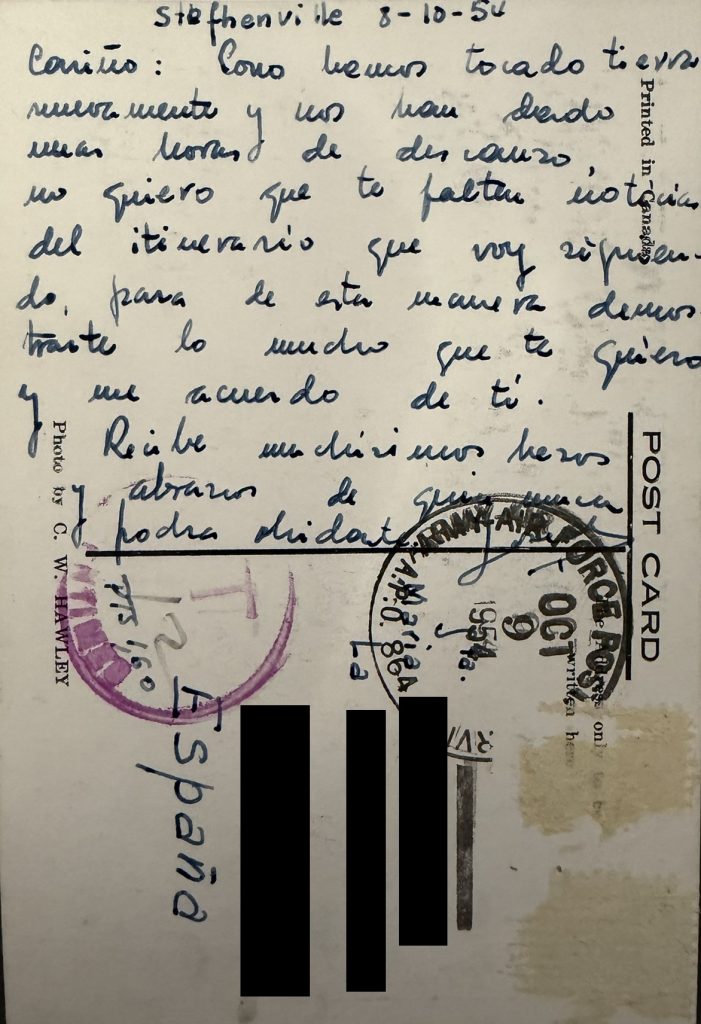 Stefhenville 8-10-54
Cariño: Como hemos tocado tierra
nuevamente y nos han dado
unas horas de descanzo,
no quiero que te falten noticias
del itinerario que voy siguien-
do, para de esta manera demos-
trarte lo mucho que te quiero
y me acuerdo de ti.
Recibe muchisimos besos
y abrazos de quien nunca
podra olvidarte
Printed in Canada
POST CARD
Photo by C. W. HAWLEY
ARMY-AIR FORCE POST
A.P.O. 864
OCT
9
1954
Srta.
La
España
T
PTS 1,60
12
only to be
written here